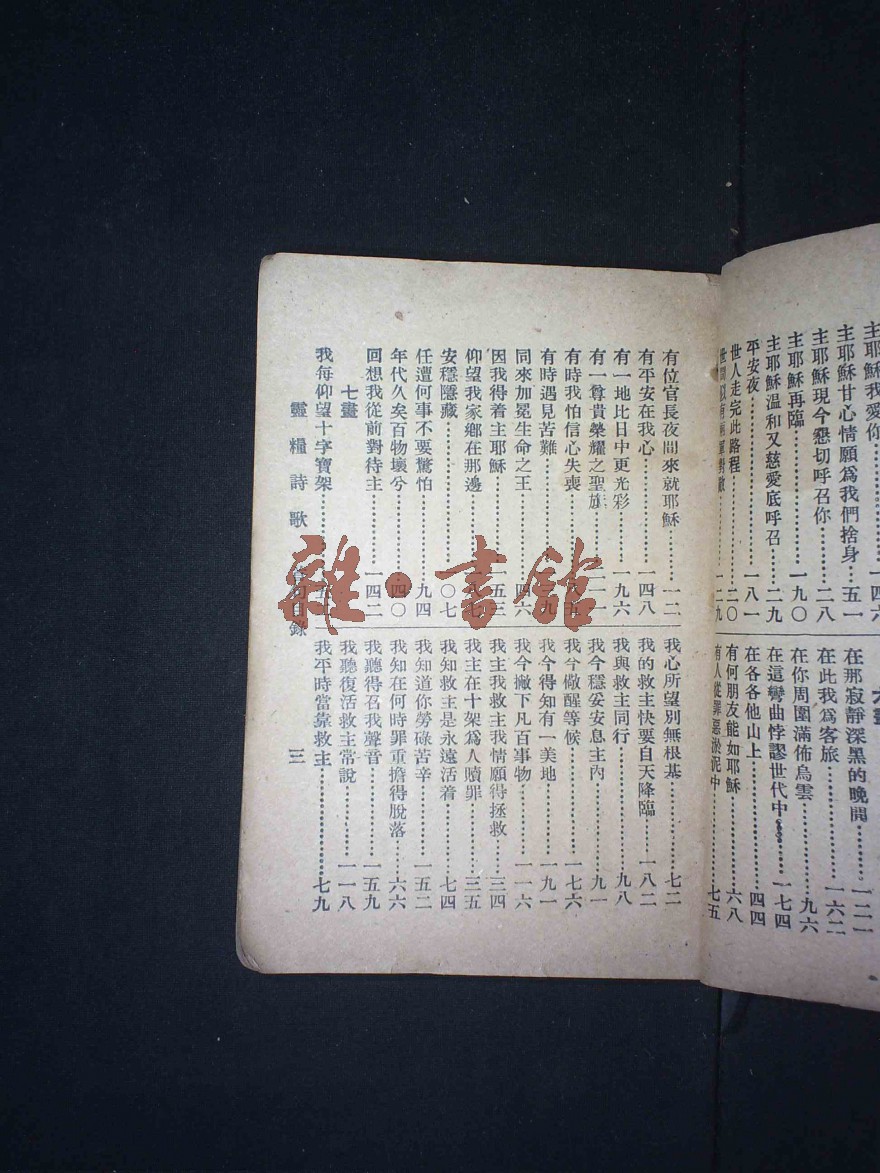 主耶穌我愛你………一四六
主耶穌甘心情願爲我們捨身…五一
主耶穌現今懇切呼召你………二八
主耶穌再臨………一九〇
主耶穌溫和又慈愛底呼召……二九
平安夜………一八一
世人走完此路程………二〇
世間似有兩軍對敵………一二九
六畫
在那寂靜深黑的晚間………一二一
在此我爲客旅………一六二
在你周圍滿佈烏雲………九六
在這彎曲悖謬世代中………一七四
在各各他山上………四四
有何朋友能如耶穌………六八
有人從罪惡淤泥中………七五
有位官長夜間來就耶穌………一二
有平安在我心………一四八
有一地比日中更光彩………一九六
有一尊貴榮耀之聖旗
有時我怕信心失喪
有時遇見苦難
同來加冕生命之王………四六
因我得着主耶穌………一五三
仰望我家鄉在那邊
安穩隱藏
任遭何事不要驚怕………九四
年代久矣百物壞兮………四〇
回想我從前對待主………一四二
七畫
我每仰望十字寶架
我心所望別無根基………七二
我的救主快要自天降臨………一八二
我與救主同行………九八
我今穩妥安息主內………九一
我今儆醒等候………一七六
我今得知有一美地………一九一
我今撇下凡百事物………一一六
我主我救主我情願得拯救……三四
我主在十架爲人贖罪………三五
我知救主是永遠活着………七四
我知道你勞碌苦辛………一五二
我知在何時罪重擔得脫落……六六
我聽得召我聲音………一五九
我聽復活救主常說………一一八
我平時當靠救主………七九
靈糧詩歌 目錄 三
雜·書館